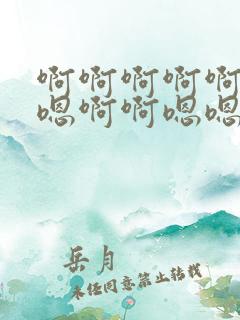 啊啊啊啊啊
嗯啊啊嗯嗯
岳月
未经同意禁止转载